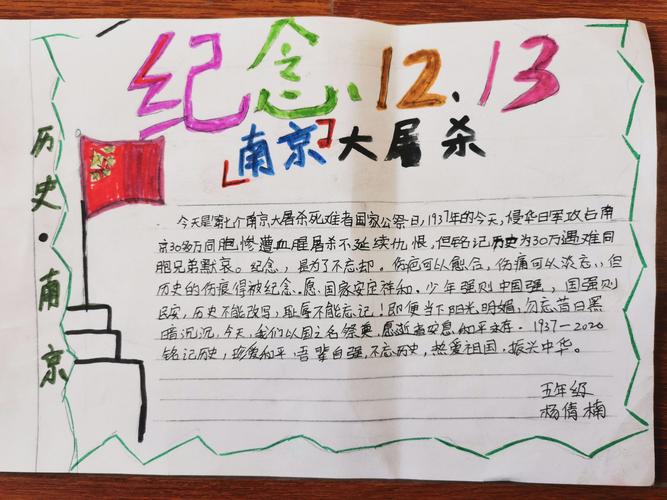 纪念、12.13
「南京」大屠杀
历史·南京
今天是第七个南京大屠杀死难者国家公祭日,1937年的今天,侵华日军攻占南
京30多万同胞惨遭血腥屠杀不延续仇恨,但铭记历史为30万遇难同
胞兄弟默哀。纪念,是为了不忘却。伤疤可以愈合,伤痛可以淡忘,但
历史的伤痕得被纪念.愿国家安定祥和。少年强则中国强,国强则
民安,历史不能改写,耻辱不能忘记!即便当下阳光明媚,勿忘昔日黑
暗沉沉,今天,我们以国之名祭奠,愿逝者安息和平永存。1937—2020
铭记历史,珍爱和平,吾辈自强,不忘历史,热爱祖国,振兴中华。
五年级
杨倩楠